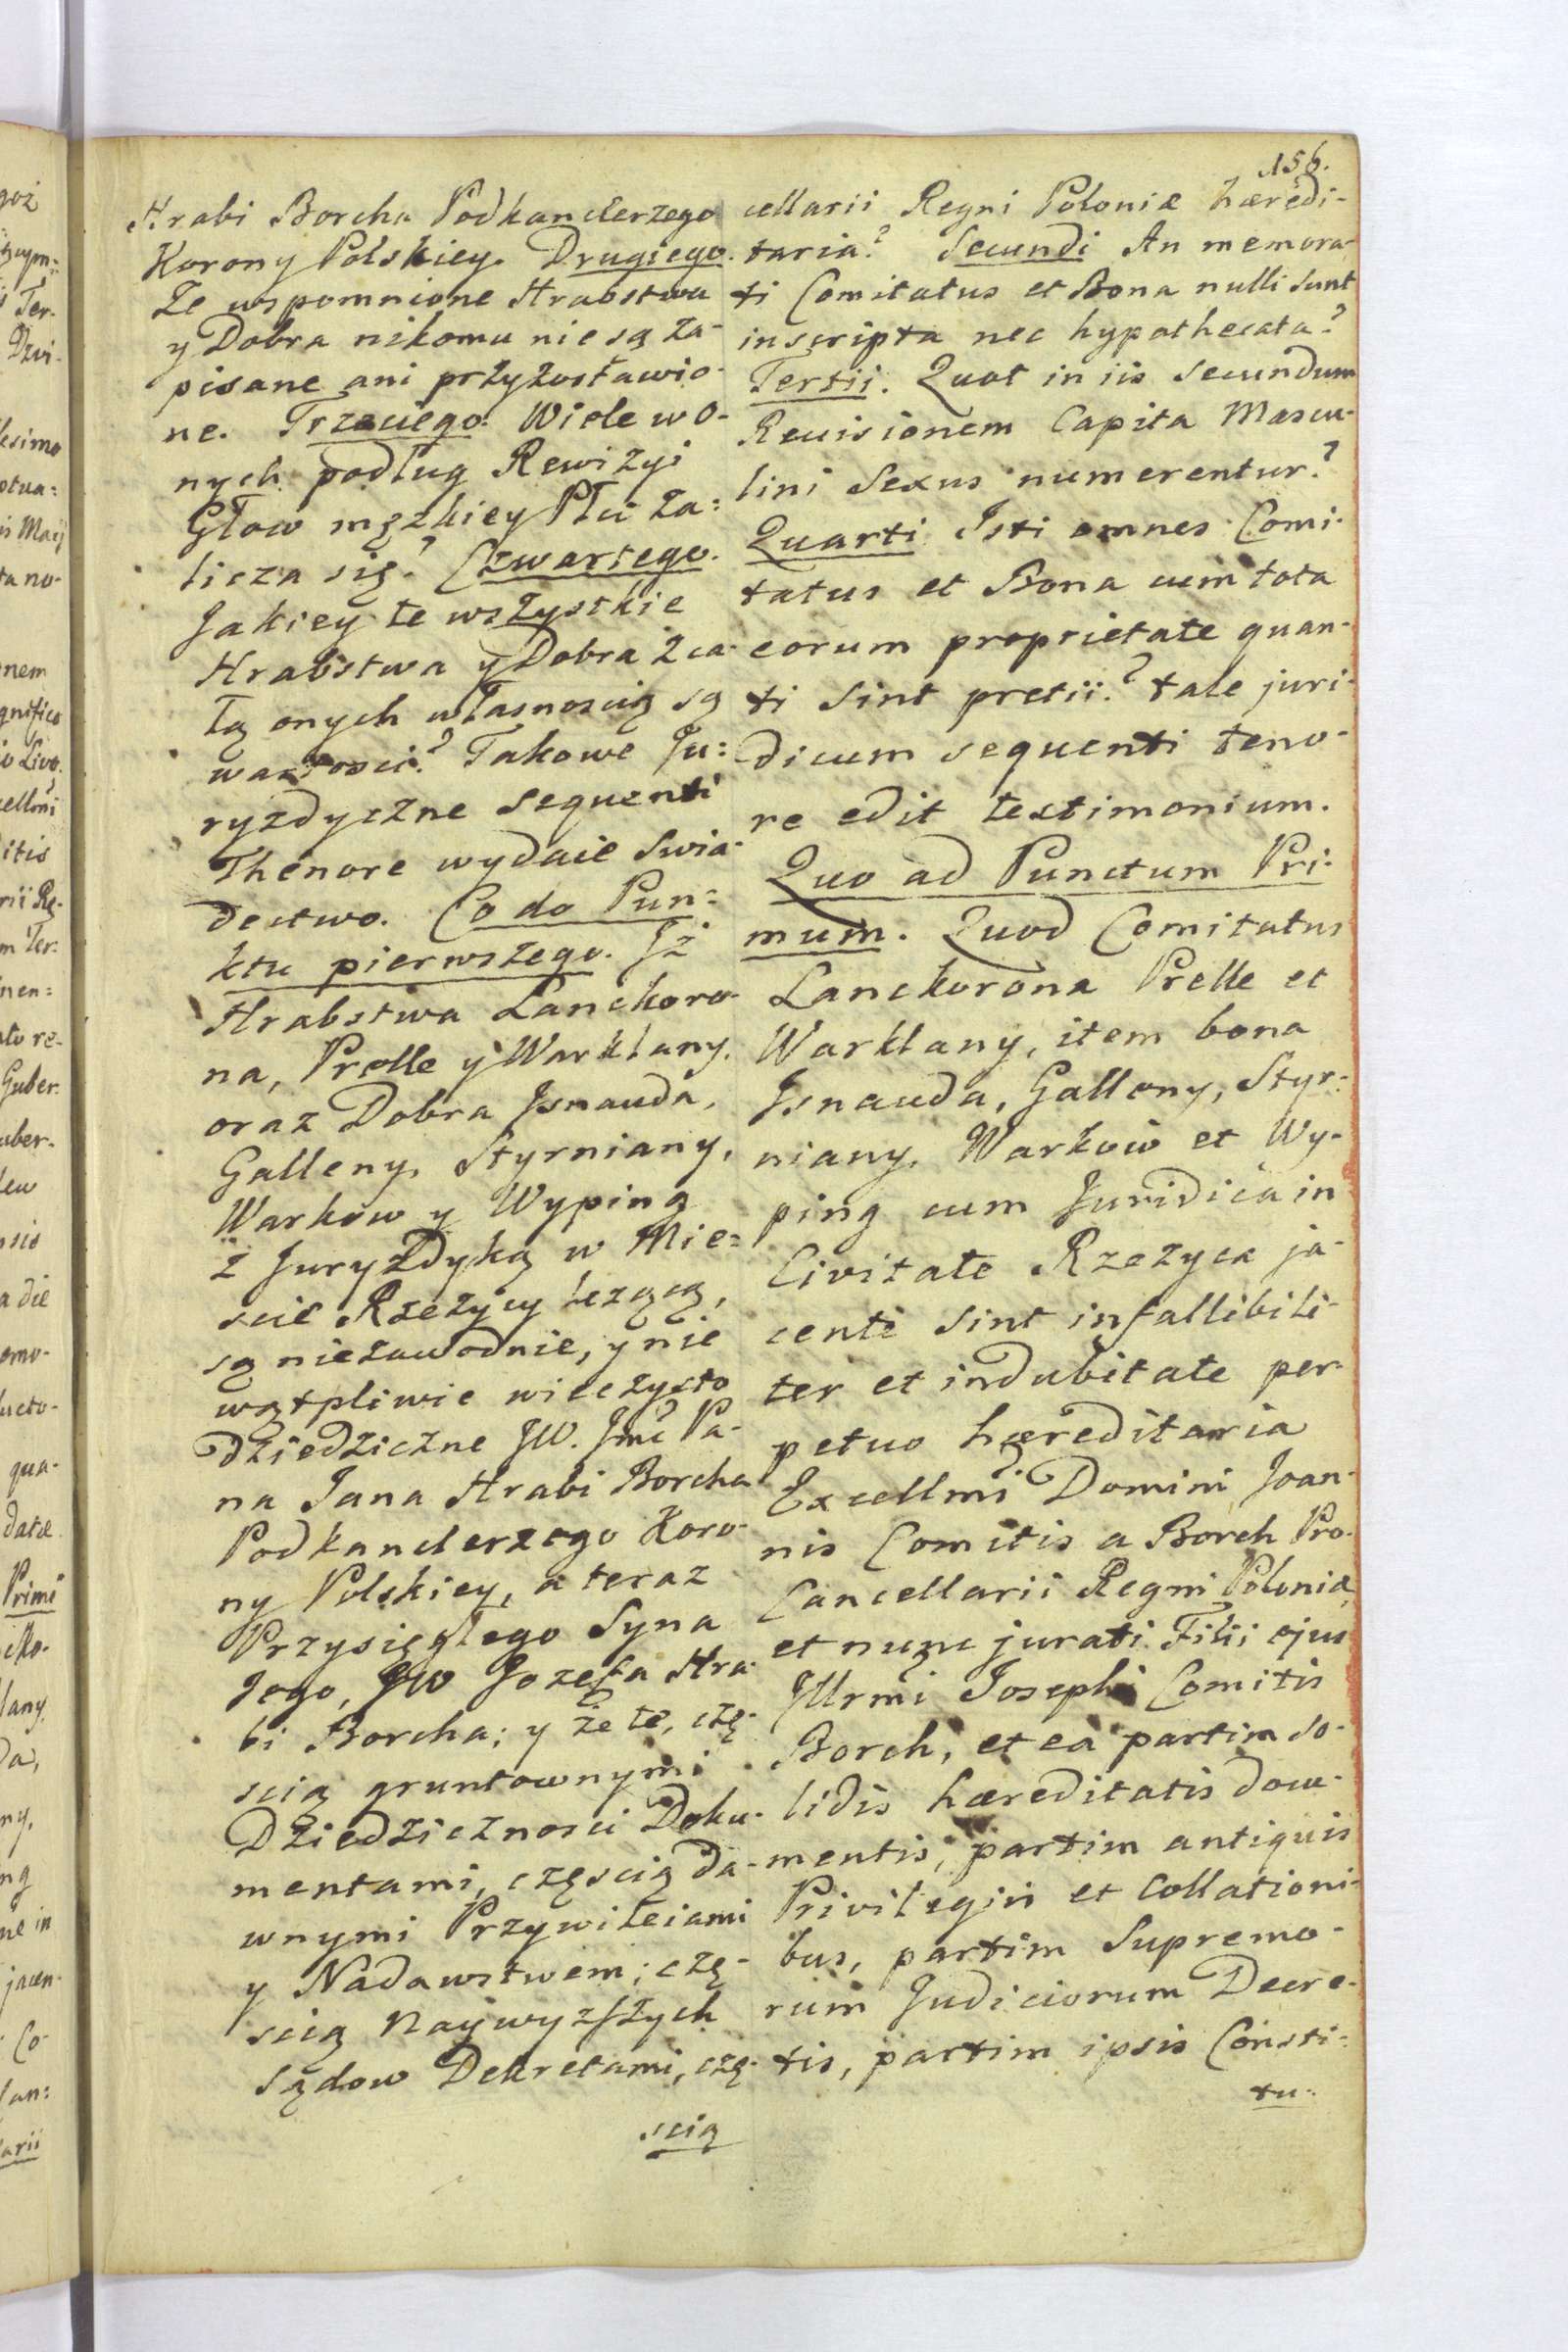 156.
Hrabi Borcha Podkanclerzego
Korony Polskiey. Drugiego.
Że wspomnione Hrabstwa
y Dobra nikomu nie są za-
pisane ani przyzostawio-
ne. Trzeciego. Wiele w o-
nych podług Rewizyi
Głow męzkiey Płci za=
licza się? Czwartego.
Jakiey te wszystkie
Hrabstwa y Dobra z ca-
łą onych własnoscią są
wartosci? Takowe Ju=
ryzdyczne sequenti
Thenore wydaie swia-
dectwo. Co do Pun=
ktu pierwszego. Jż
Hrabstwa Lanckoro-
na, Prelle y Warklany.
oraz Dobra Jsnauda,
Galleny, Styrniany,
Warkow y Wyping
z Juryzdyką w Mie=
scie Rzeżycy leżącą,
są niezawodnie, y nie
wątpliwie wieczysto
dziedziczne JW. Jmć Pa-
na Jana Hrabi Borcha
Podkanclerzego Koro-
ny Polskiey, a teraz
Przysięgłego Syna
Jego, JW Jozefa Hra-
bi Borcha; y że te, czę-
scią gruntownymi
Dziedzicznosci Doku-
mentami, częscią da-
wnymi Przywileiami
y Nadawstwem; czę-
scią Naywyzszych
Sądow Dekretami, czę-
scią
cellarii Regni Poloniæ hæredi-
taria? Secundi An memora-
ti Comitatus et Bona nulli sunt
inscripta nec hypothecata?
Tertii. Quot in iis secundum
Revisionem Capita Mascu-
lini Sexus numerentur?
Quarti Isti omnes Comi-
tatus et Bona cum tota
eorum proprietate quan-
ti sint pretii? tale juri-
dicum sequenti teno-
re edit testimonium.
Quo ad Punctum Pri-
mum. Quod Comitatus
Lanckorona Prelle et
Warklany, item bona
Jsnauda, Galleny, Styr=
niany, Warkow et Wy-
ping cum Juridica in
Civitate Rzeżyca ja-
centi sint infallibili-
ter et indubitate per-
petuo hæreditaria
Excellmi Domini Joan-
nis Comitis a Borch Pro-
Cancellarii Regni Poloniæ,
et nunc jurati Filii ejus
Jllrmi Josephi Comitis
Borch, et ea partim so-
lidis hæreditatis docu-
mentis, partim antiquis
Privilegiis et Collationi-
bus, partim Supremo-
rum Judiciorum Decre-
tis, partim ipsis Consti=
tu-